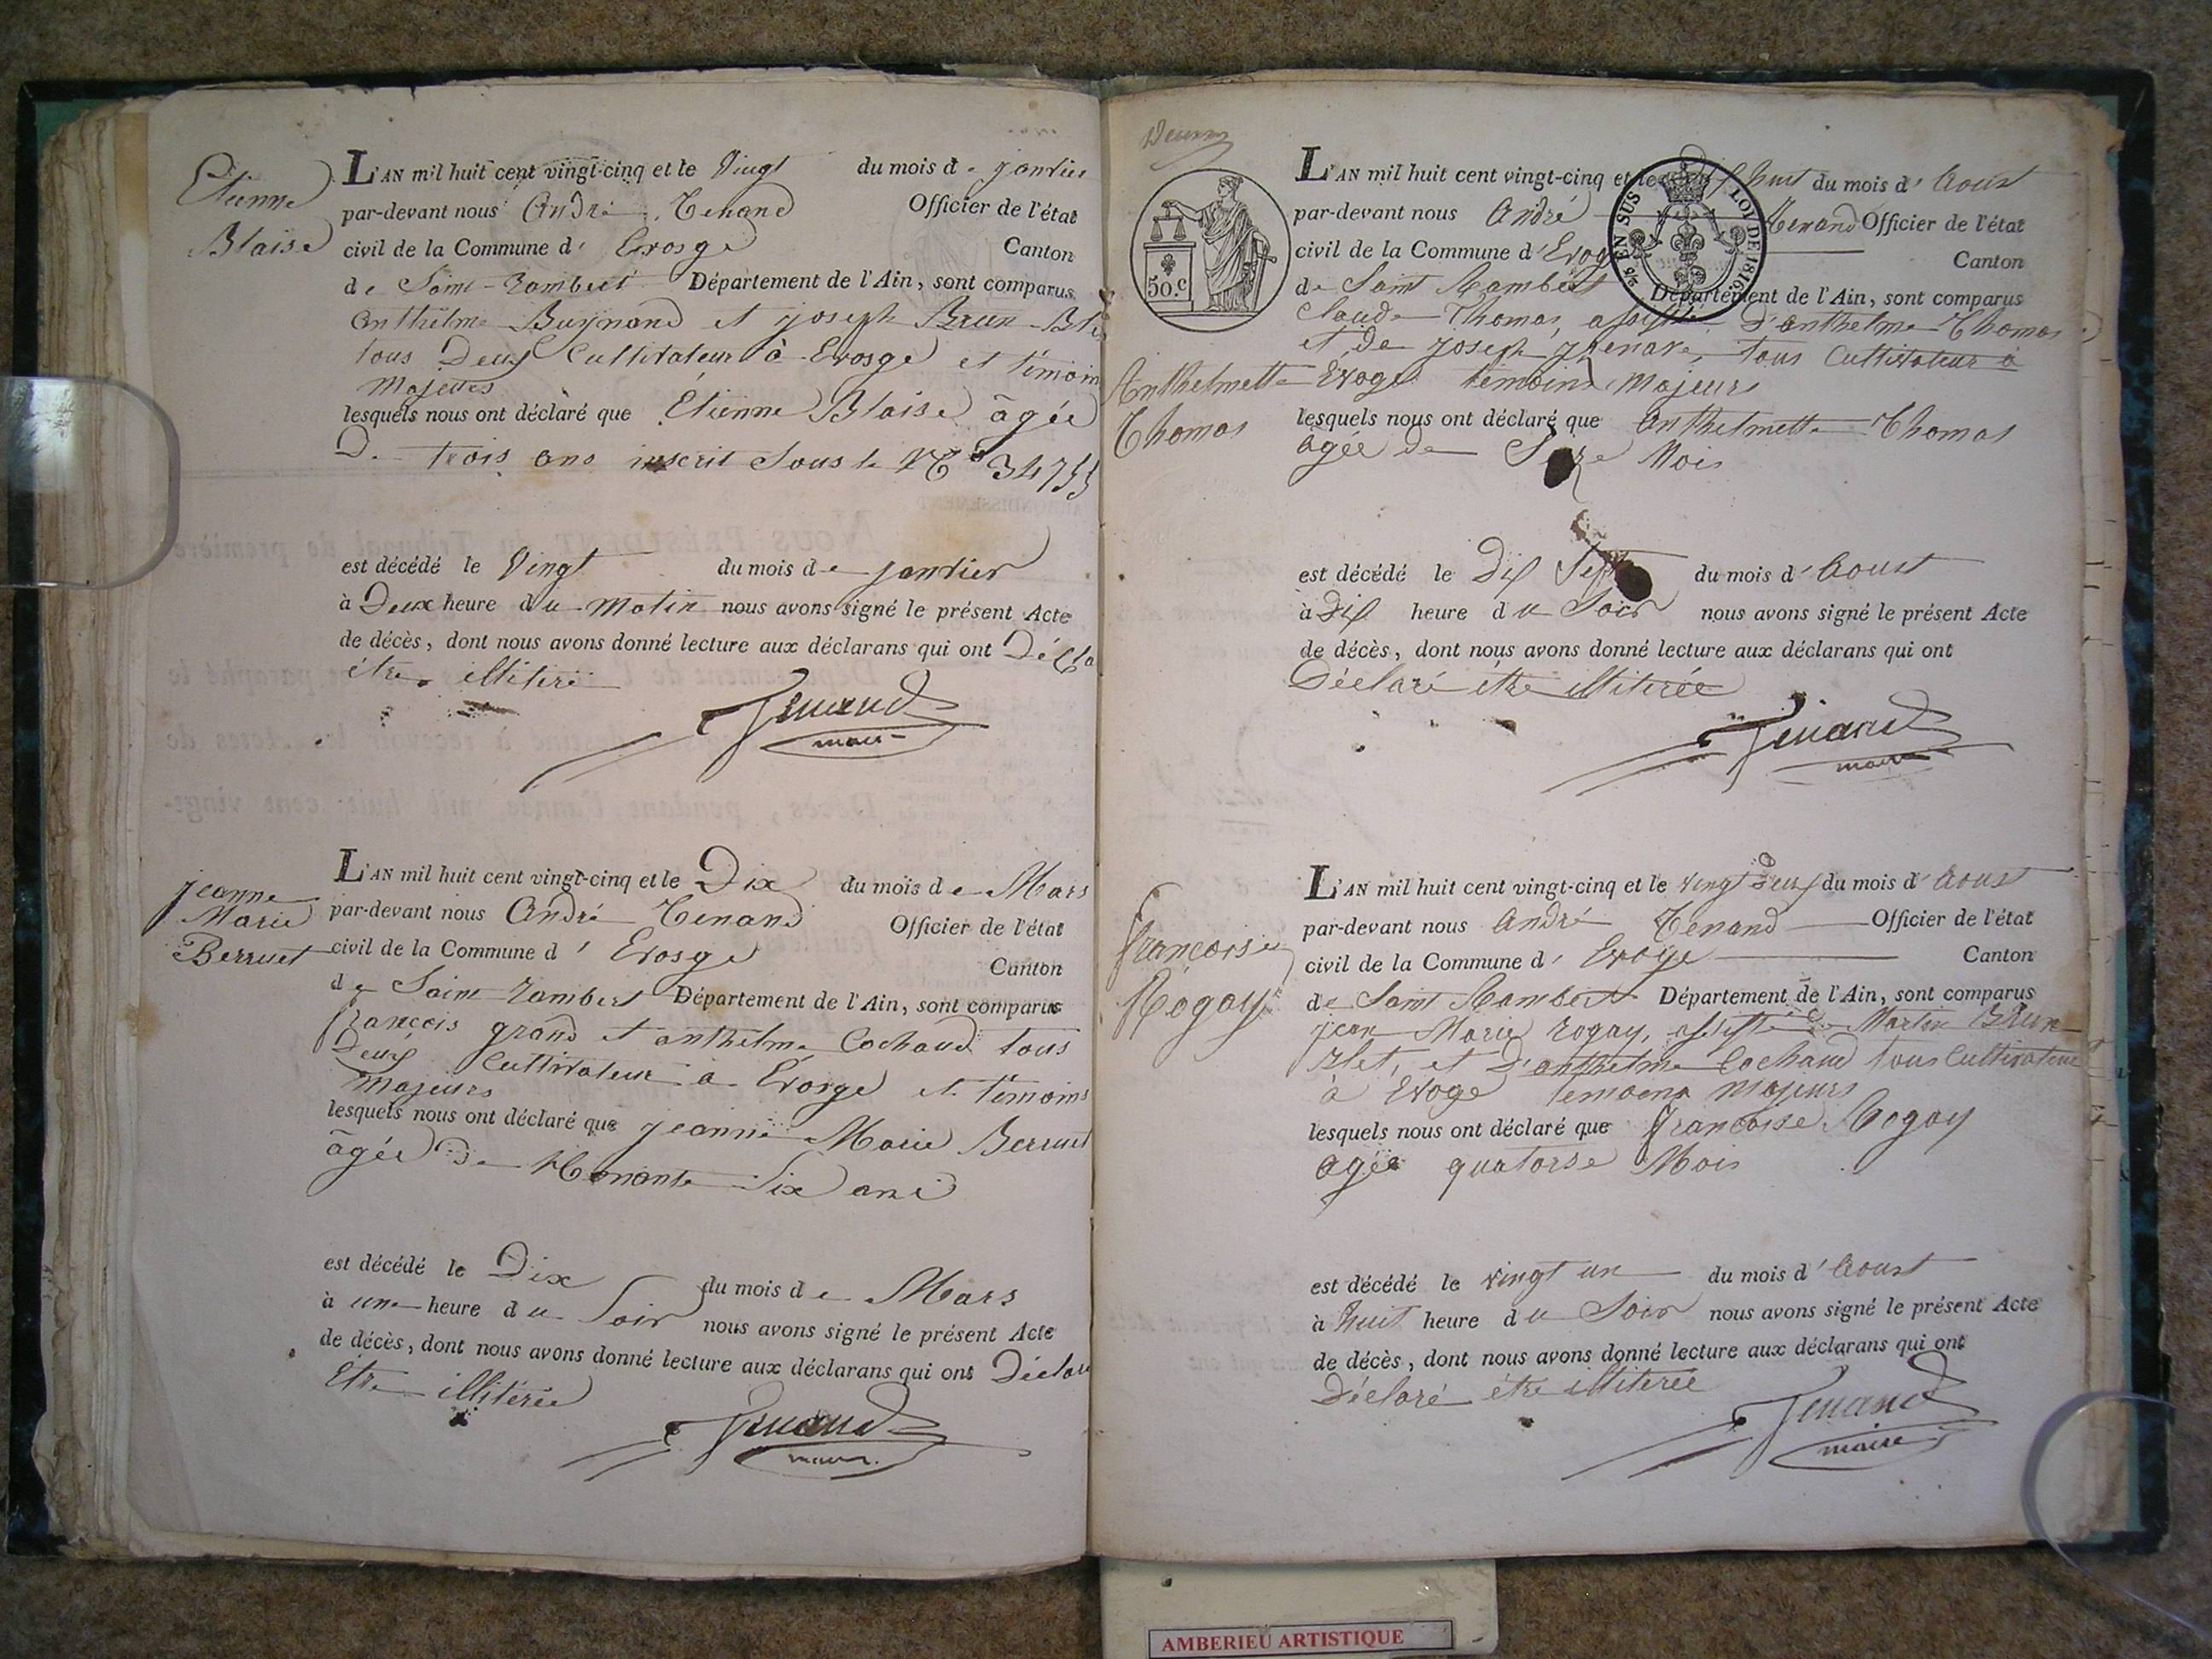 Etienne
Blaise
L'AN mil huit cent vingt-cinq et le Vingt du mois de janvier
par-devant nous André Tenand Officier de l'état
civil de la Commune d' Evosge Canton
de Saint-Rambert Département de l'Ain, sont comparus
anthelme Buynand et joseph Brun-Blet
tous Deux Cultivateur à Evosge et témoin
Majeurs
lesquels nous ont déclaré que Etienne Blaise âgée
De trois ans inscrit sous le No 34755
est décédé le Vingt du mois de janvier
à Deux heure du matin nous avons signé le présent Acte
de décès, dont nous avons donné lecture aux déclarans qui ont Décla
être illitéré
Tenand
maire
jeanne
Marie
Berruet
L'AN mil huit cent vingt-cinq et le Dix du mois de Mars
par-devant nous André Tenand Officier de l'état
civil de la Commune d' Evosge Canton
de Saint Rambert Département de l'Ain, sont comparus
françois grand et anthelme Cochaud tous
Deux Cultivateur à Evosge et témoins
Majeurs
lesquels nous ont déclaré que jeanne Marie Berruet
âgée de Nonante Six ans
est décédé le Dix du mois de Mars
à une heure du Soir nous avons signé le présent Acte
de décès, dont nous avons donné lecture aux déclarans qui ont Déclaré
Etre illitérée
Tenand
maire
50.c
EN SUS
LOI DE 1816.
L'AN mil huit cent vingt-cinq et le huit du mois d'Aoust
par-devant nous André Tenand Officier de l'état
civil de la Commune d'Evoge Canton
de Saint Rambert Département de l'Ain, sont comparus
Claude Thomas, assisté D'anthelme Thomas
et de joseph tous Cultivateur à
Anthelmette
Thomas
Evoge témoins Majeurs
lesquels nous ont déclaré que Anthelmette Thomas
agée de Mois
est décédé le Dix Sept du mois d'Aoust
à Dix heure du Soir nous avons signé le présent Acte
de décès, dont nous avons donné lecture aux déclarans qui ont
Déclaré être illitérée
Tenand
maire
françoise
Rogay
L'AN mil huit cent vingt-cinq et le vingt Deux du mois d'Aoust
par-devant nous André Tenand Officier de l'état
civil de la Commune d' Evoge Canton
de Saint Rambert Département de l'Ain, sont comparus
jean Marie rogay, assisté de Martin Brun
Blet, et D'anthelme Cochaud tous Cultivateur
à Evoge temoins Majeurs
lesquels nous ont déclaré que françoise Rogay
agée quatorse Mois
est décédé le vingt un du mois d'Aoust
à huit heure du Soir nous avons signé le présent Acte
de décès, dont nous avons donné lecture aux déclarans qui ont
Déclaré être illitérée
Tenand
maire
AMBERIEU ARTISTIQUE